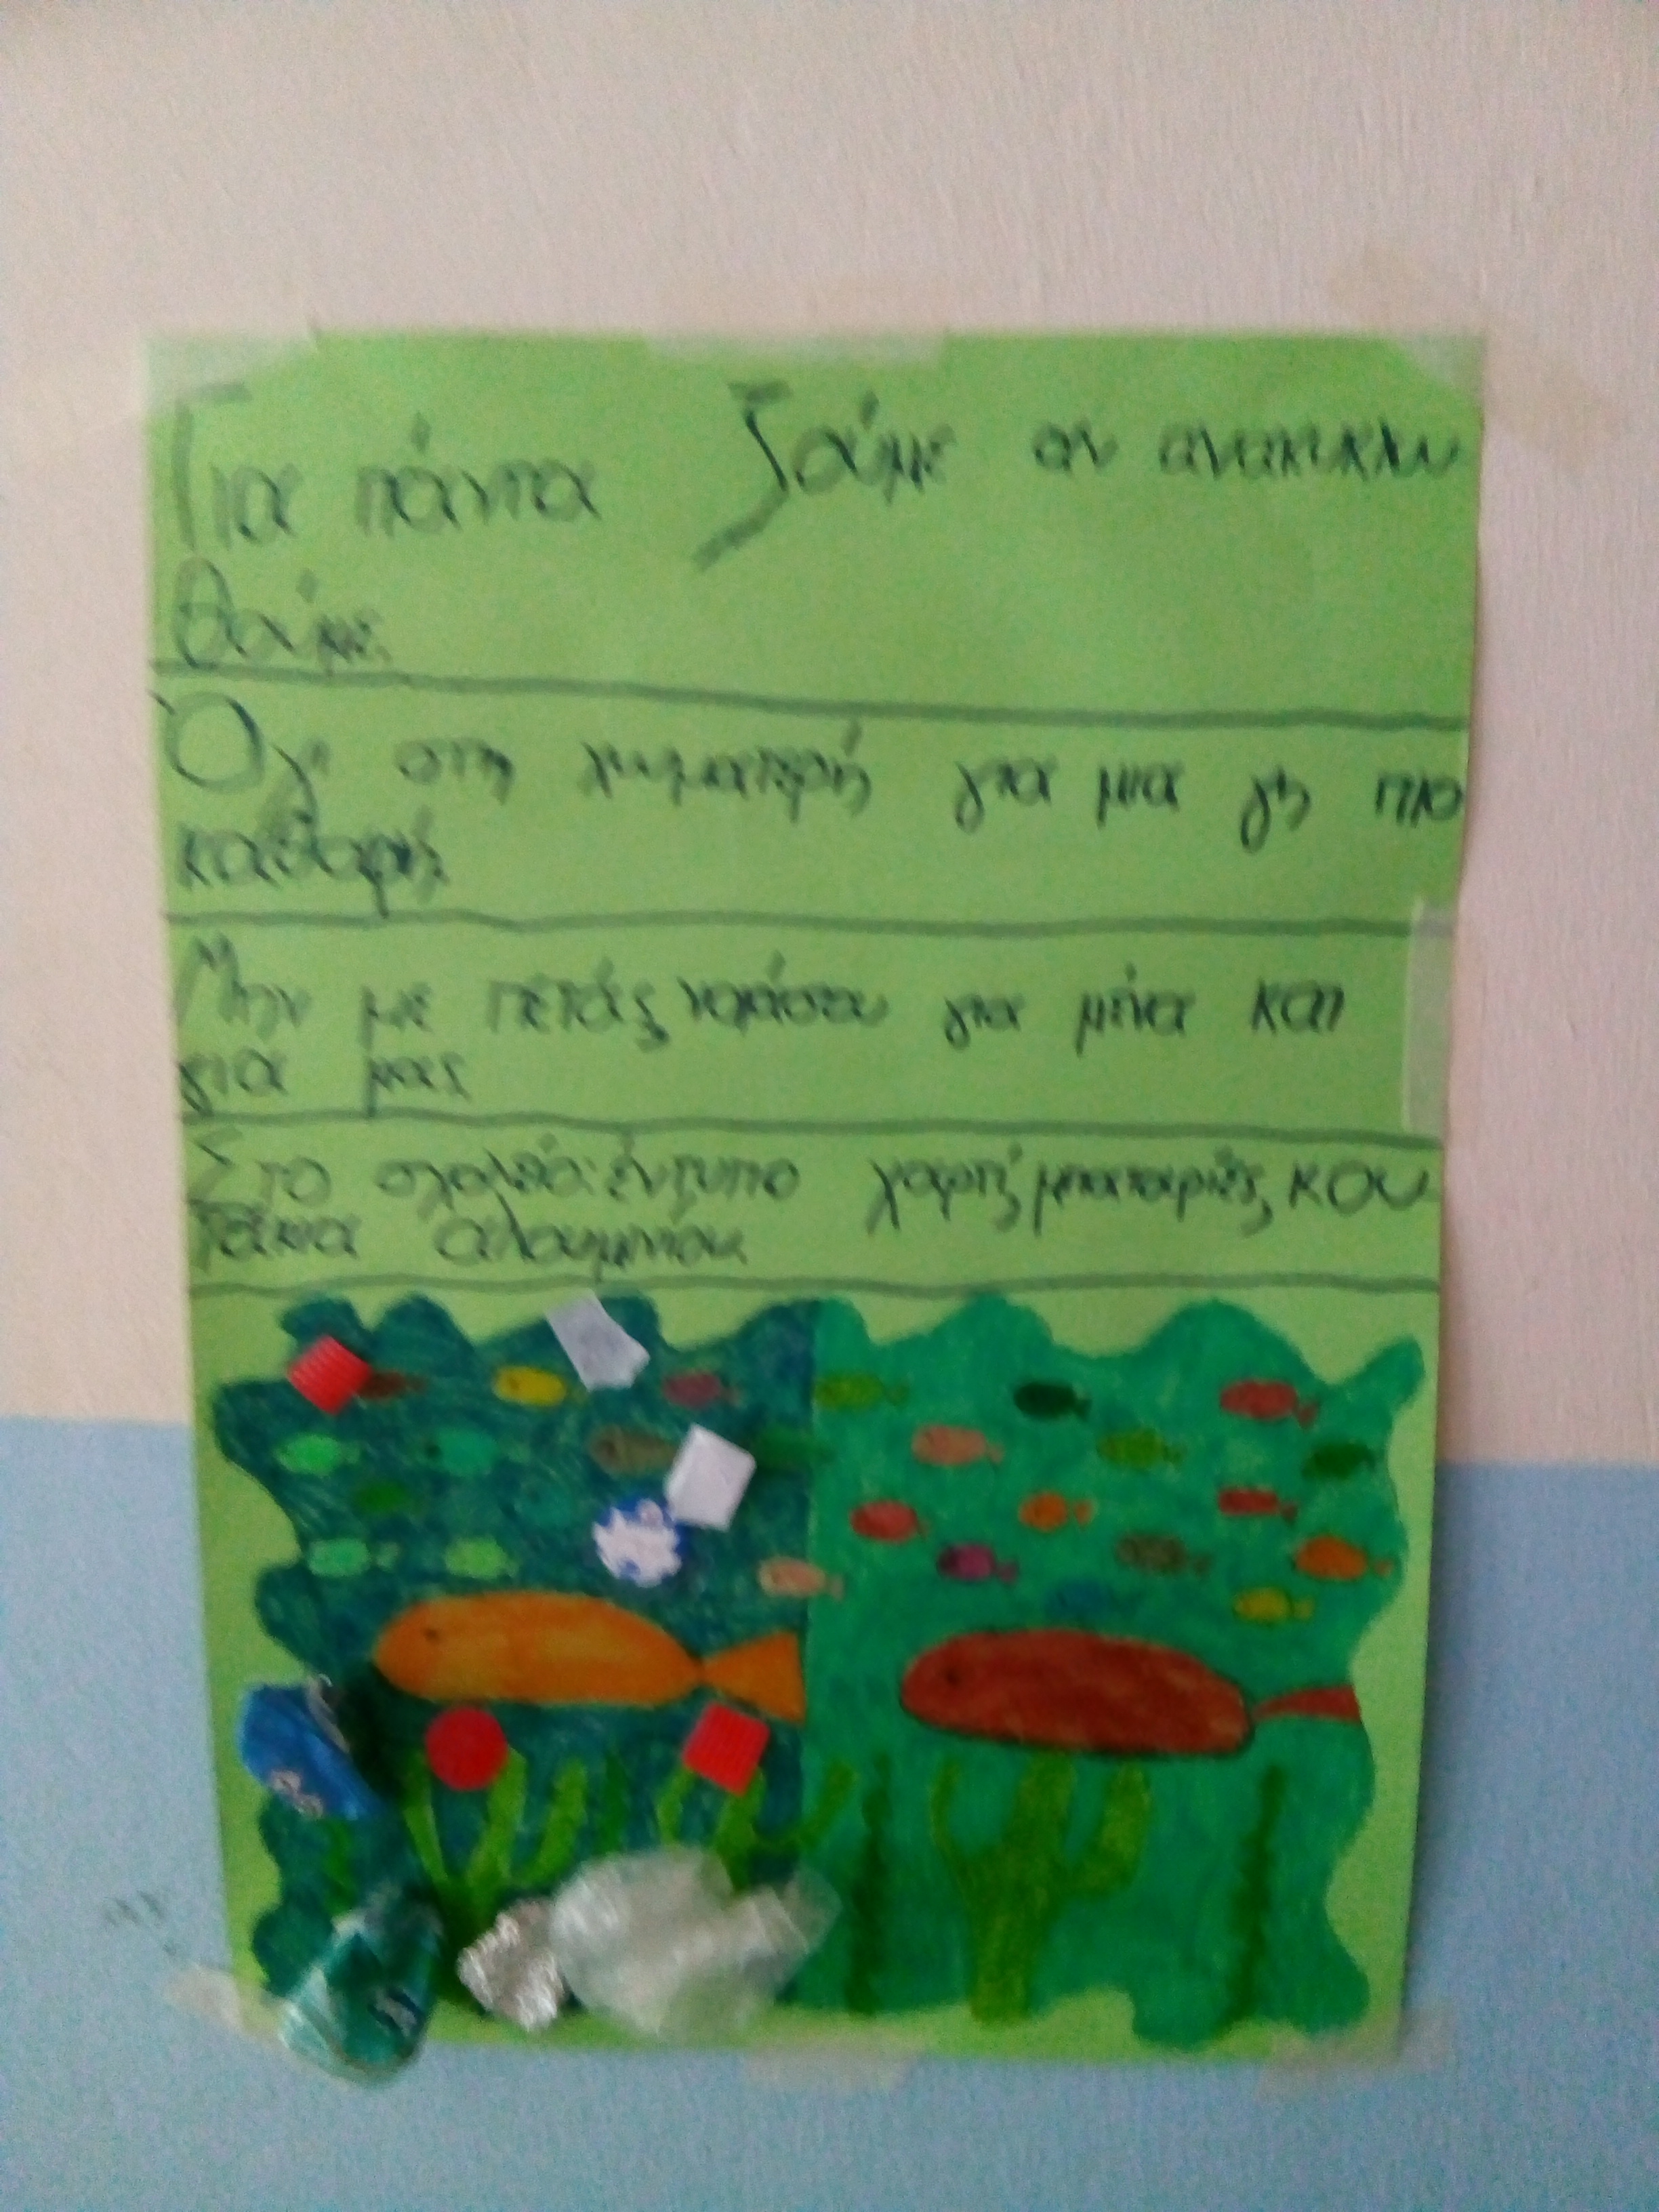 Για πάντα ζούμε αν ανακυκλω
θούμε
Όχι στη χωματερή για μια γη πιο
καθαρή
Μην με πετάς νοιάσου για μένα και
για μας
Στο σχολείο: έντυπο χαρτί, μπαταρίες, κου
τάκια αλουμινίου